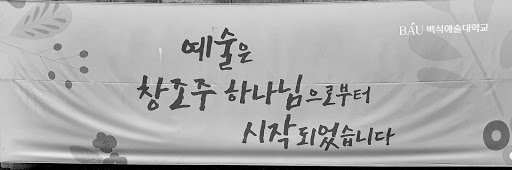 BAU 백석예술대학교
예술은
창조주 하나님으로부터
시작되었습니다